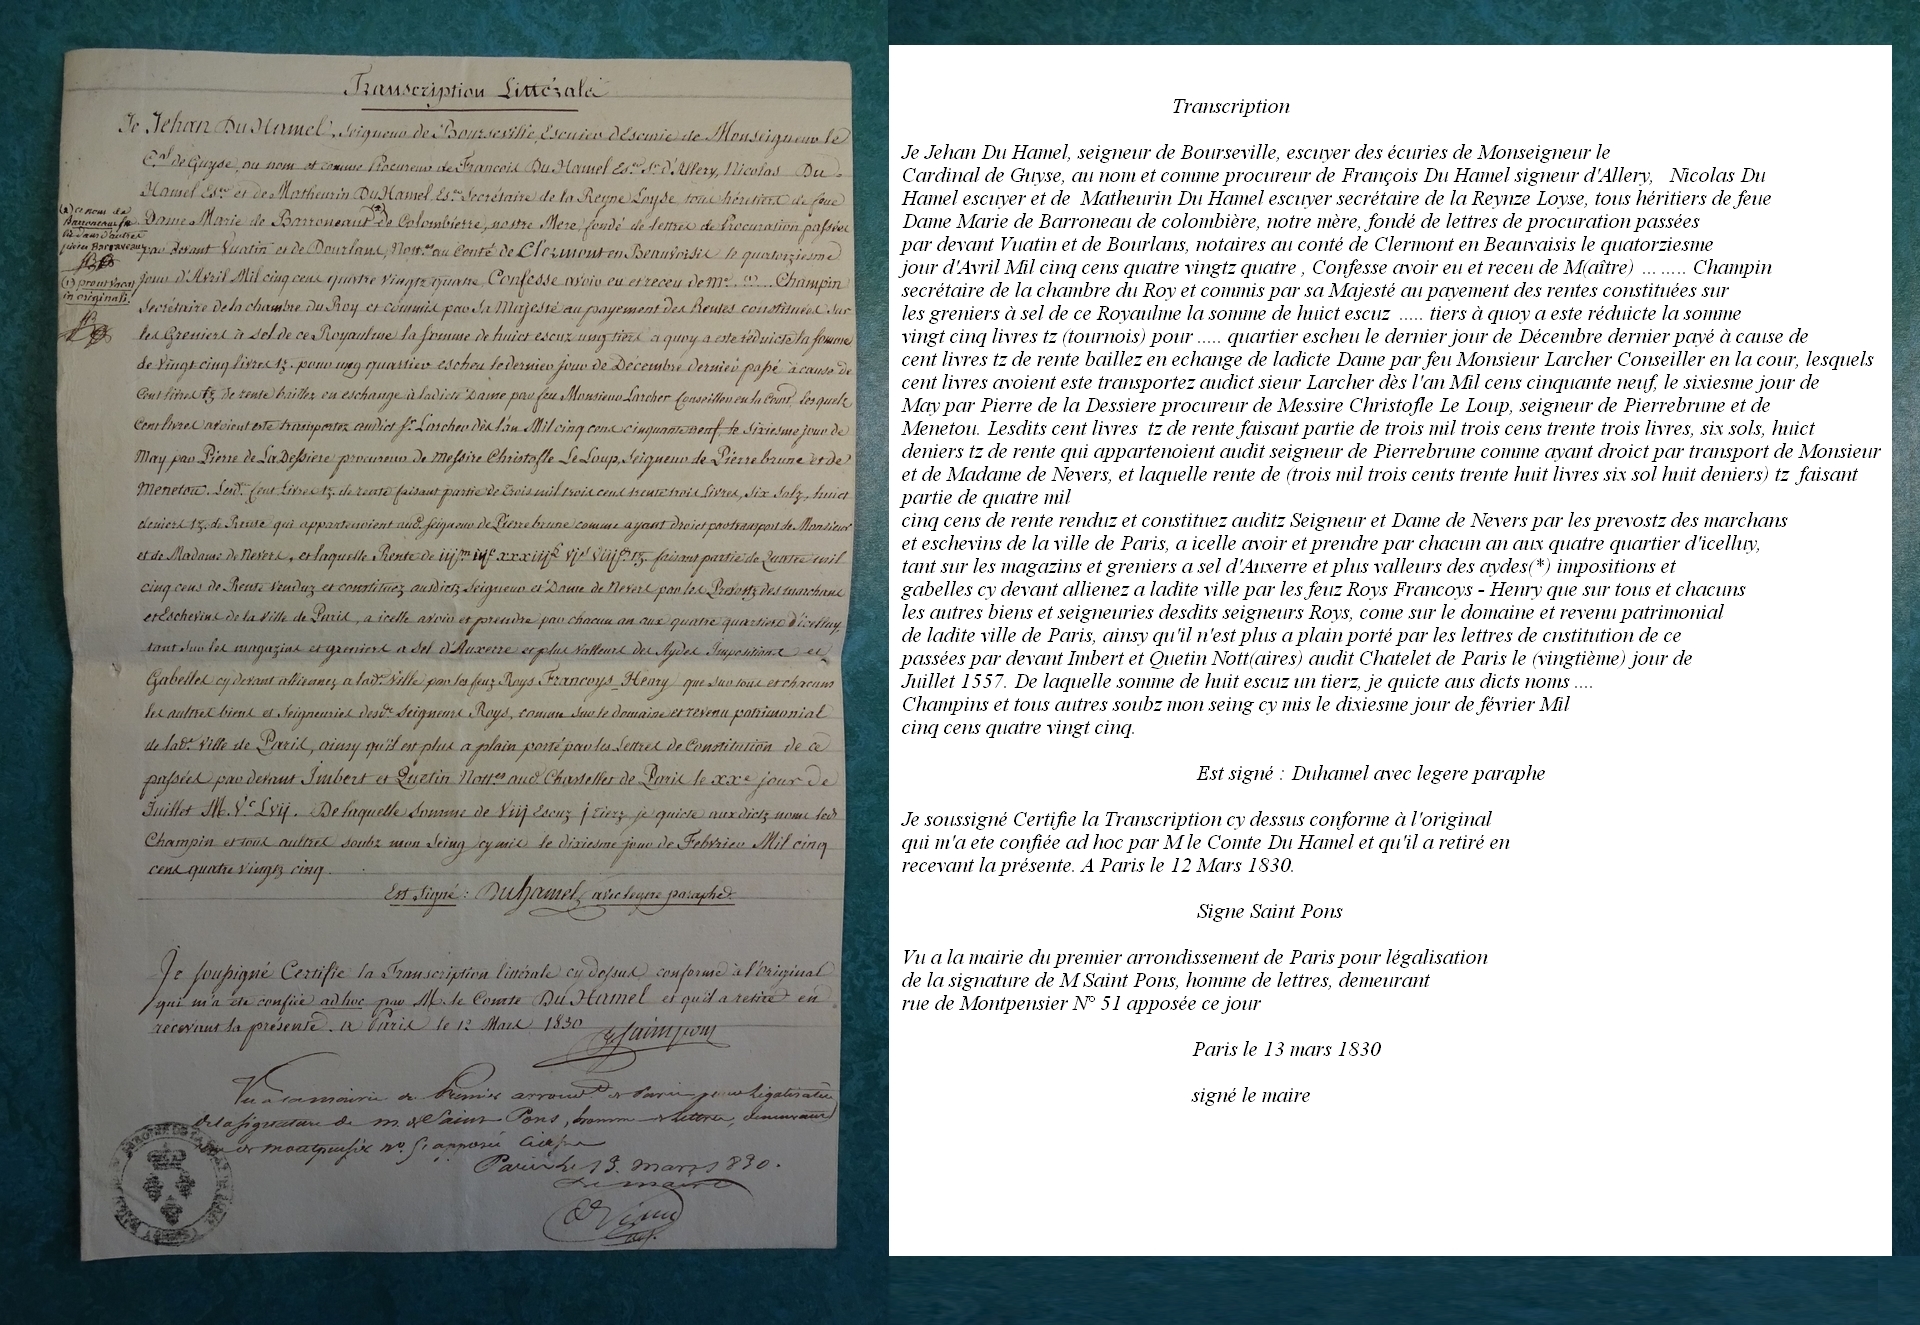 Transcription Littérale
Je Jehan Du Hamel, Seigneur de Bourseville, Escuier d'Escuirie de Monseigneur le
C.al de Guyse, au nom et comme Procureur de Francois Du Hamel Es.er S.r d'Allery, Nicolas Du
Hamel Es.er et de Matheurin Du Hamel Es.er Secrétaire de la Reyne Loyse tous héritiers de feue
Dame Marie de Barroneau de Colombierre, nostre Mere, fondé de lettres de Procuration passées
par devant Vuatin et de Bourlans, Nott.es au Conté de Clermont en Beauvoisis le quatorziesme
jour d'Avril Mil cinq cens quatre vingtz quatre, Confesse avoir eu et receu de m.e ... Champin
Secrétaire de la chambre du Roy et commis par Sa Majesté au payement des Rentes constituées sur
les Greniers à sel de ce Royaulme la somme de huict escuz ung tiers a quoy a esté réduicte la somme
de vingt cinq livres tz. pour ung quartier escheu le dernier jour de Décembre dernier passé à cause de
Cent livres tz de rente baillez en eschange à ladicte Dame par feu Monsieur Larcher Conseiller en la Court, lesquels
Cent livres avoient este transportez audict s.r Larcher dès l'an Mil cinq cens cinquante neuf, le sixiesme jour de
May par Pierre de La Dessiere procureur de Messire Christofle Le Loup, Seigneur de Pierrebrune et de
Menetou. Lesd. Cent Livres tz. de rente faisant partie de Trois mil trois cens trente trois Livres, Six Solz, huict
deniers tz. de Rente qui appartenoient aud. seigneur de Pierrebrune comme ayant droict par transport de Monsieur
et de Madame de Nevers, et laquelle Rente de iijm iijc xxxiij tz. faisant partie de Quatre mil
cinq cens de Rente venduz et constituez ausdictz Seigneur et Dame de Nevers par les Prevostz des marchans
et Eschevins de la Ville de Paris, a icelle avoir et prendre par chacun an aux quatre quartiers d'icelluy,
tant sur les magazins et greniers a sel d'Auxerre et plus valleurs des Aydes Impositions et
Gabelles cy devant allienez a lad. Ville par les feuz Roys Francoys _ Henry que sur tous et chacuns
les autres biens et Seigneuries desd. Seigneurs Roys, comme sur le domaine et revenu patrimonial
de lad. Ville de Paris, ainsy qu'il est plus a plain porté par les Lettres de Constitution de ce
passées par devant Imbert et Quetin Nott.es aud. Chastellet de Paris le xx.e jour de
Juillet M. V.c Lvij. De laquelle Somme de Viij Escuz j Tierz je quicte aux dictz noms led.
Champin et tous aultres soubz mon Seing cy mis le dixiesme jour de Febvrier Mil cinq
cens quatre vingtz cinq.
Est Signé : Duhamel, avec legere paraphe.
(2) ce nom de
Barroneau
lû dans d'autres
pièces Borgaveaux
(1) prout vacat
in originali.
Je soussigné Certifie la Transcription littérale cy dessus conforme à l'Original
qui m'a été confiée ad hoc par M. le Comte Du Hamel et qu'il a retiré en
recevant la présente. A Paris le 12 Mars 1830
Vu a la mairie du premier arrond.t de Paris pour légalisation
de la signature de m. de Saint Pons, homme de lettres, demeurant
rue de montpensier n.o 51 apposée
Paris le 13 mars 1830.
Le maire
Transcription
Je Jehan Du Hamel, seigneur de Bourseville, escuyer des écuries de Monseigneur le
Cardinal de Guyse, au nom et comme procureur de François Du Hamel signeur d'Allery, Nicolas Du
Hamel escuyer et de Matheurin Du Hamel escuyer secrétaire de la Reynze Loyse, tous héritiers de feue
Dame Marie de Barroneau de colombière, notre mère, fondé de lettres de procuration passées
par devant Vuatin et de Bourlans, notaires au conté de Clermont en Beauvaisis le quatorziesme
jour d'Avril Mil cinq cens quatre vingtz quatre , Confesse avoir eu et receu de M(aître) ... ..... Champin
secrétaire de la chambre du Roy et commis par sa Majesté au payement des rentes constituées sur
les greniers à sel de ce Royaulme la somme de huict escuz ..... tiers à quoy a este réduicte la somme
vingt cinq livres tz (tournois) pour ..... quartier escheu le dernier jour de Décembre dernier payé à cause de
cent livres tz de rente baillez en echange de ladicte Dame par feu Monsieur Larcher Conseiller en la cour, lesquels
cent livres avoient este transportez audict sieur Larcher dès l'an Mil cens cinquante neuf, le sixiesme jour de
May par Pierre de la Dessiere procureur de Messire Christofle Le Loup, seigneur de Pierrebrune et de
Menetou. Lesdits cent livres tz de rente faisant partie de trois mil trois cens trente trois livres, six sols, huict
deniers tz de rente qui appartenoient audit seigneur de Pierrebrune comme ayant droict par transport de Monsieur
et de Madame de Nevers, et laquelle rente de (trois mil trois cents trente huit livres six sol huit deniers) tz faisant
partie de quatre mil
cinq cens de rente renduz et constituez auditz Seigneur et Dame de Nevers par les prevostz des marchans
et eschevins de la ville de Paris, a icelle avoir et prendre par chacun an aux quatre quartier d'icelluy,
tant sur les magazins et greniers a sel d'Auxerre et plus valleurs des aydes(*) impositions et
gabelles cy devant allienez a ladite ville par les feuz Roys Francoys - Henry que sur tous et chacuns
les autres biens et seigneuries desdits seigneurs Roys, come sur le domaine et revenu patrimonial
de ladite ville de Paris, ainsy qu'il n'est plus a plain porté par les lettres de cnstitution de ce
passées par devant Imbert et Quetin Nott(aires) audit Chatelet de Paris le (vingtième) jour de
Juillet 1557. De laquelle somme de huit escuz un tierz, je quicte aus dicts noms ....
Champins et tous autres soubz mon seing cy mis le dixiesme jour de février Mil
cinq cens quatre vingt cinq.
Est signé : Duhamel avec legere paraphe
Je soussigné Certifie la Transcription cy dessus conforme à l'original
qui m'a ete confiée ad hoc par M le Comte Du Hamel et qu'il a retiré en
recevant la présente. A Paris le 12 Mars 1830.
Signe Saint Pons
Vu a la mairie du premier arrondissement de Paris pour légalisation
de la signature de M Saint Pons, homme de lettres, demeurant
rue de Montpensier N° 51 apposée ce jour
Paris le 13 mars 1830
signé le maire